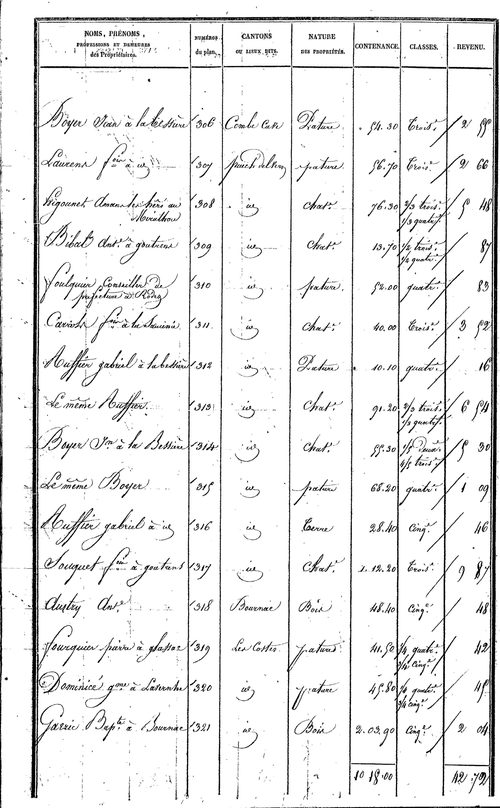 NOMS, PRÉNOMS, PROFESSIONS ET DEMEURES des Propriétaires. NUMÉROS du plan. CANTONS OU LIEUX DITS. NATURE DES PROPRIÉTÉS. CONTENANCE. CLASSES. REVENU.
Boyer Jean à la Bessière 306 Combe Pature 54.30 Trois.e 2 55
Laurens f.ois à id 307 pature 56.70 Trois.e 2 66
308 id Chat.e 76.30 2/3 trois. 5 48
1/3 quatr.
Bibal Ant.e à goutrens 309 id Chat.e 13.70 1/2 trois. 87
1/2 quatr.
foulquier Conseiller de 310 id pature 52.00 quatr.e 83
préfecture à Rodez
311 id Chat.e 40.00 Trois.e 3 52
Ruffier gabriel à la bessière 312 id Pature 10.10 quatr.e 16
Le même Ruffier 313 id Chat.e 91.20 2/3 trois. 6 54
1/3 quatr.
Boyer J.n à la Bessière 314 id Chat.e 55.30 1/5 deux. 5 30
4/5 trois.
Le même Boyer 315 id pature 68.20 quatr.e 1 09
Ruffier gabriel à id 316 id Terre 28.40 Cinq.e 46
f.ois à goutrens 317 id Chat.e 1.12.20 Trois.e 9 87
Austry Ant.e 318 Bournac Bois 48.40 Cinq.e 48
fourquier pierre à glassac 319 Les Costes patures 41.50 1/4 quatr. 42
3/4 Cinq.e
Dominicé g.me à 320 id pature 45.80 quatr. 45
Cinq.e
Garric Bap.te à Bournac 321 id Bois 2.03.90 Cinq.e 2 04
10 18.00 42.72